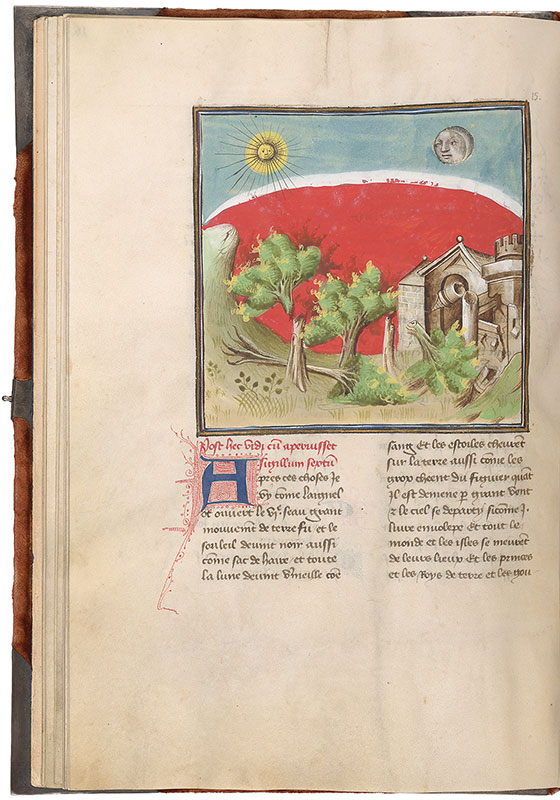 15.
Post hec vidi cũ aperuisset
sigillum sextũ
Apres ces choses Je
vy cõme laignel
ot ouvert le vjͤ seau grant
mouvemẽt de terre fu et le
souleil devint noir aussi
cõme sac de haire et toute
la lune devint vermeille cõe
sang Et les estoiles cheurent
sur la terre aussi cõme les
grop cheent du figuier quãt
Jl est demene p grant vent
z le ciel se departy sicõme j.
livre envolepe Et tout le
monde et les isles se meurẽt
de leurs lieux Et les princes
et les Roys de terre et les